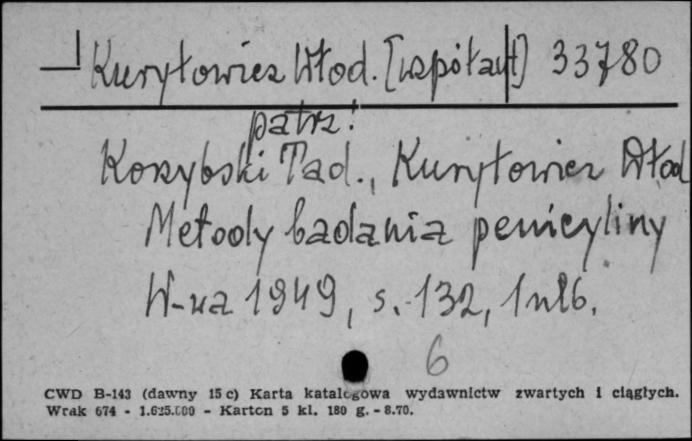 Kuryłowicz Włod. [współaut] 33780
patrz:
Korzybski Tad., Kuryłowicz Włod
Metody badania penicyliny
W-wa 1949, s. 132, 1 nlb.
6
CWD B-143 (dawny 15 c) Karta katalogowa wydawnictw zwartych i ciągłych.
Wrak 674 - 1.625.000 - Karton 5 kl. 180 g. - 8.70.